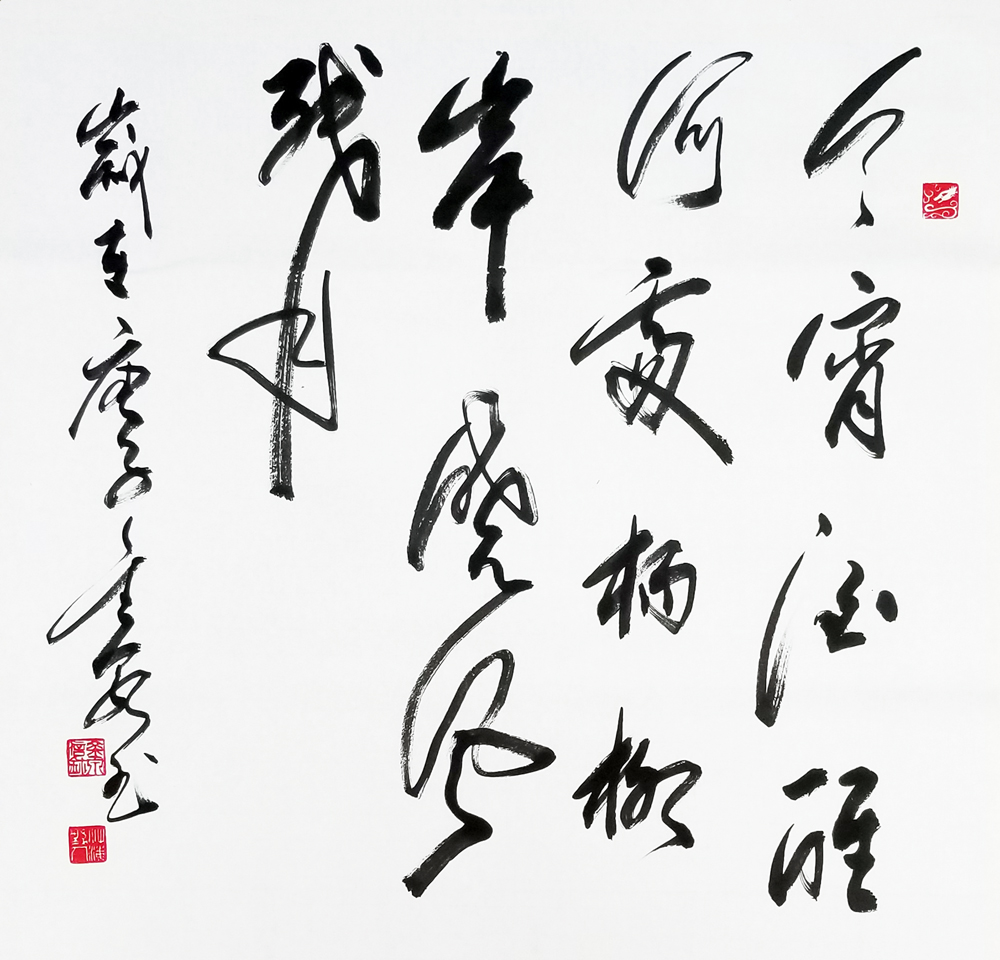 今宵酒醒
何處楊柳
岸曉風
殘月
歲在庚子